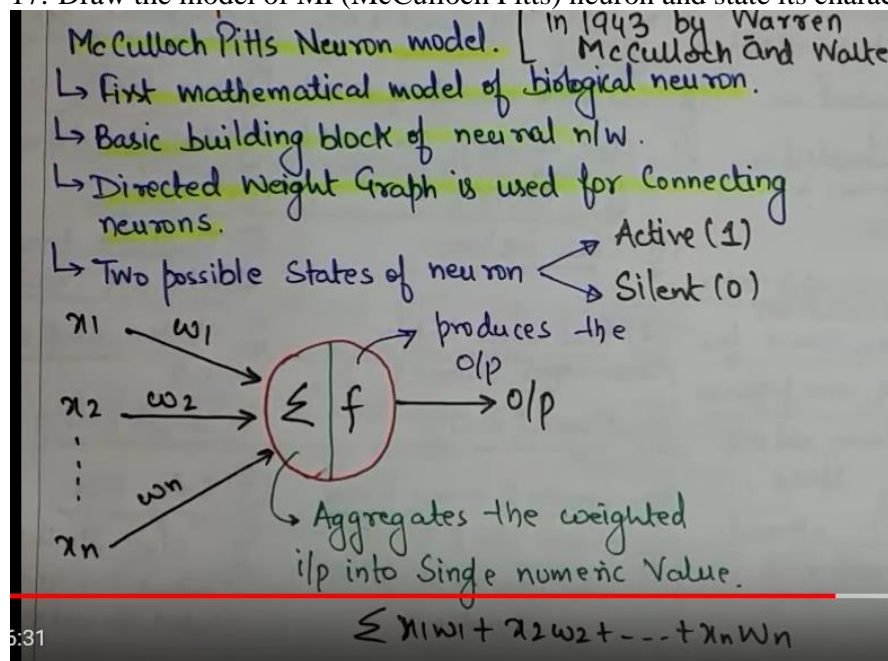 17. Draw the model of MP (McCulloch Pitts) neuron and state its charac
McCulloch Pitts Neuron model. [ in 1943 by Warren
McCulloch and Walte
↳ First mathematical model of biological neuron.
↳ Basic building block of neural n/w.
↳ Directed Weight Graph is used for Connecting
neurons.
↳ Two possible States of neuron
Active (1)
Silent (0)
x1 w1
x2 w2
xn wn
Σ f
produces the
o/p
o/p
↳ Aggregates the weighted
i/p into Single numeric Value.
Σ x1w1 + x2w2 + ---- + xnwn
5:31